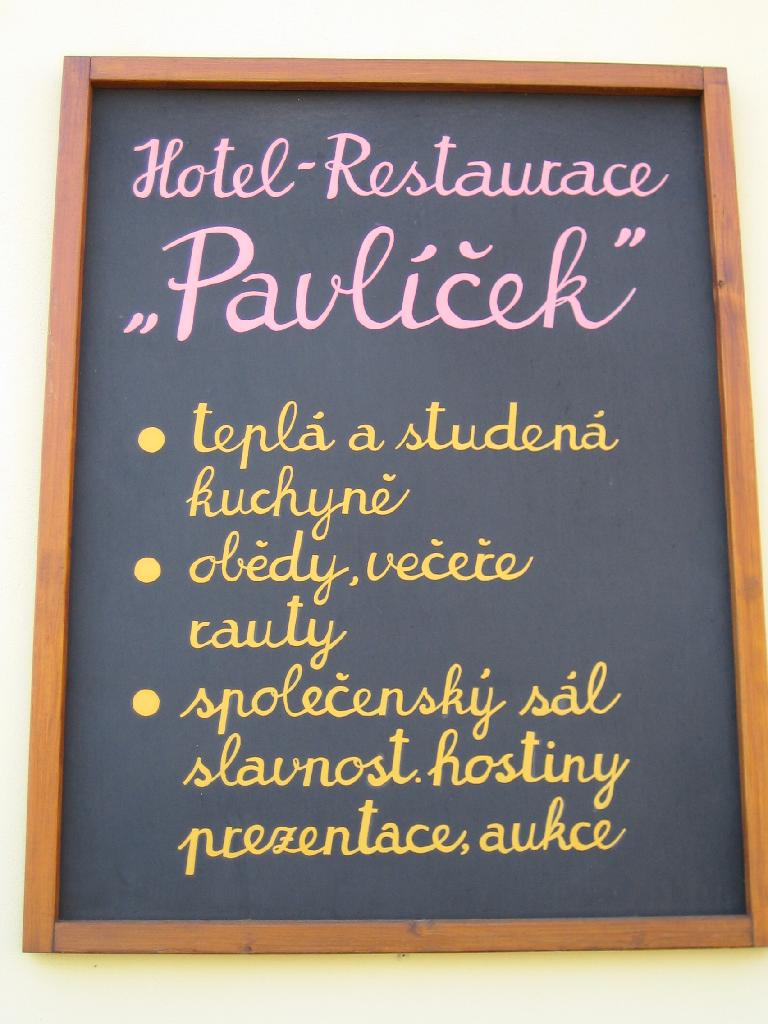 Hotel-Restaurace
„Pavlíček”
• teplá a studená
kuchyně
• obědy, večeře
rauty
• společenský sál
slavnost. hostiny
prezentace, aukce